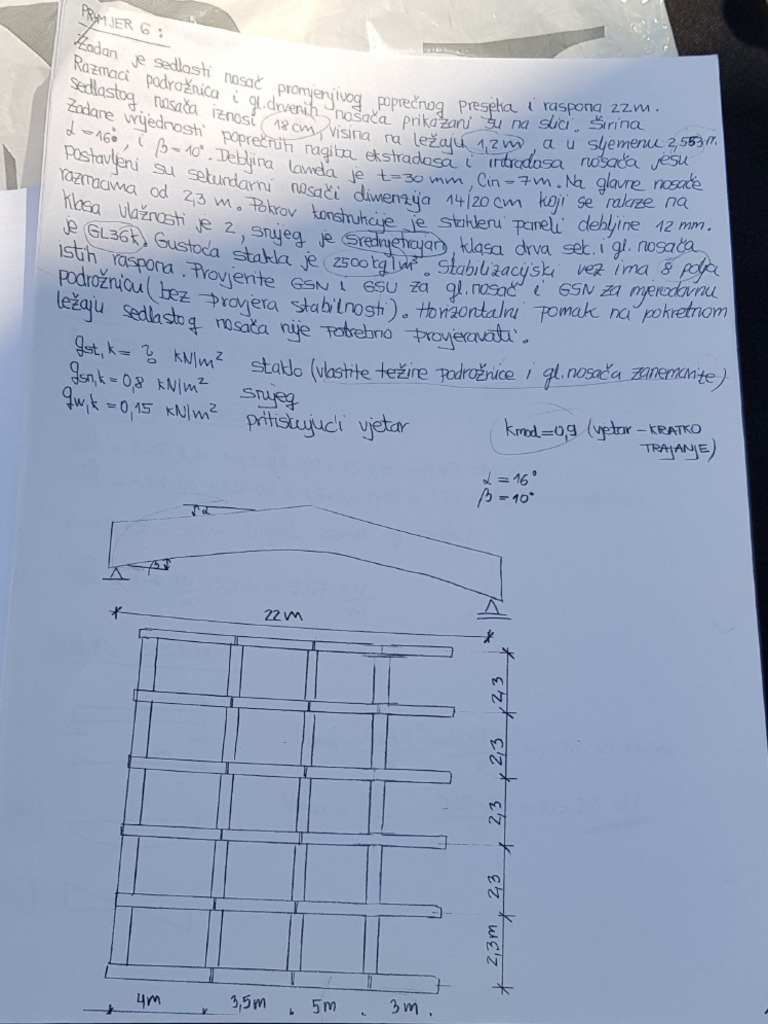 PRIMJER 6:
Zadan je sedlasti nosač promjenjivog poprečnog presjeka i raspona 22m.
Razmaci podrožnica i gl. drvenih nosača prikazani su na slici. Širina
sedlastog nosača iznosi 18cm, visina na ležaju 1,2m, a u sljemenu 2,553m.
Zadane vrijednosti poprečnih nagiba ekstradosa i intradosa nosača jesu
α=16° i β=10°. Debljina lamela je t=30 mm, Cin=7m. Na glavne nosače
postavljeni su sekundarni nosači dimenzija 14/20 cm koji se nalaze na
razmacima od 2,3 m. Pokrov konstrukcije je stakleni paneli debljine 12 mm.
Klasa vlažnosti je 2, snijeg je srednjetrajan, klasa drva sek. i gl. nosača
je GL36k. Gustoća stakla je 2500kg/m³. Stabilizacijski vez ima 8 polja
istih raspona. Provjerite GSN i GSU za gl. nosač i GSN za mjerodavnu
podrožnicu (bez provjera stabilnosti). Horizontalni pomak na pokretnom
ležaju sedlastog nosača nije potrebno provjeravati.
gst,k = ? kN/m² staklo (vlastite težine podrožnice i gl. nosača zanemarite)
gsn,k = 0,8 kN/m² snijeg
gw,k = 0,15 kN/m² pritiskujući vjetar
kmod=0,9 (vjetar - KRATKO
TRAJANJE)
α = 16°
β = 10°
α
β
22m
2,3
2,3
2,3
2,3
2,3m
4m 3,5m 5m 3m